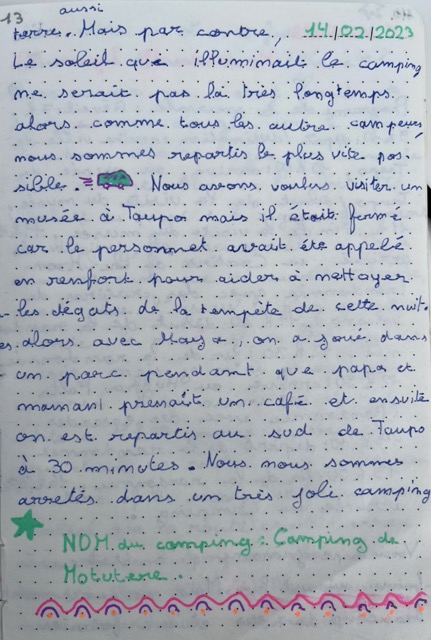 13 aussi
terre. Mais par contre, 14/02/2023
Le soleil qui illuminait le camping
ne serait pas là très longtemps.
alors comme tous les autre campeurs
nous sommes repartis le plus vite pos-
sible. Nous avons voulus visiter un
musée à Taupo mais il était fermé
car le personnel avait été appelé
en renfort pour aider à nettoyer
les dégats de la tempête de cette nuit.
alors avec on a joué dans
un parc pendant que papa et
maman prenait un café et ensuite
on est repartis au sud de Taupo
à 30 minutes. Nous nous sommes
arretés dans un très joli camping
NOM du camping : Camping de
Motutere.